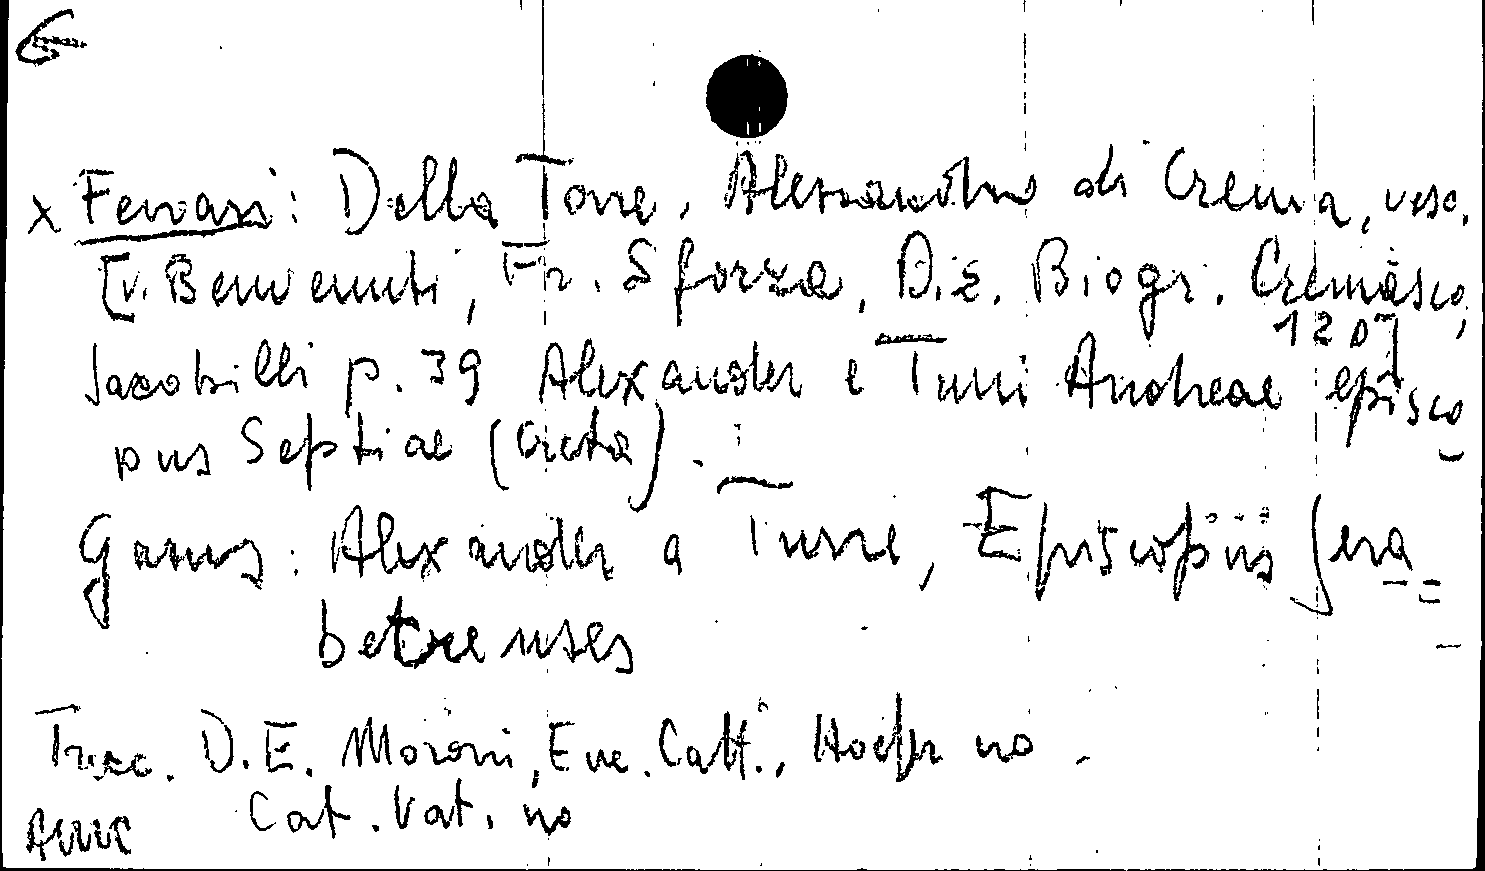 x Ferrari: Della Torre, Alessandro di Crema, vesc.
[v. Benvenuti, Fr. Sforza, Diz. Biogr. Cremasco,
120]
Jacobilli p. 39 Alexander e Turri Andreae episco
pus Septiae (Creta).
Gams: Alexander a Turre, Episcopus Jera=
betrenses
Trecc. D.E. Moroni, Enc. Catt., Hoefer no.
Cat. Vat. no